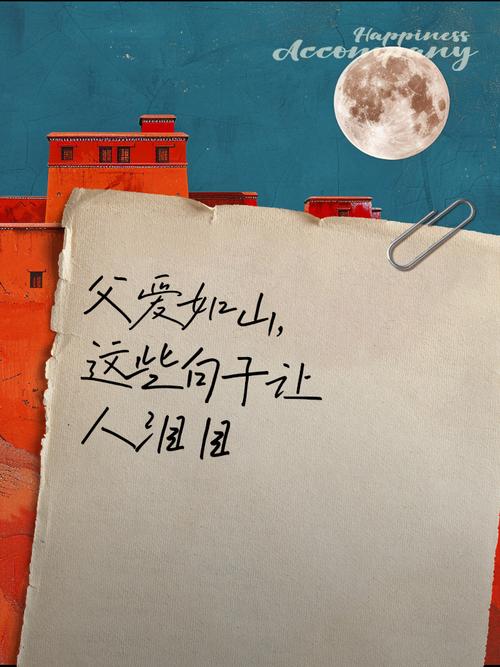 Happiness
Accompany
父爱如山,
这些句子让
人泪目